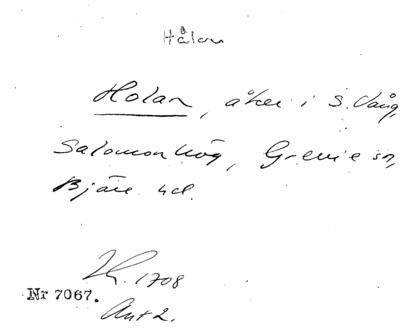 Hålan
Holan, åker i S. Vång,
Salomonhög, Grevie sn,
Bjäre hd.
1708
Nr 7067.
Akt 2.